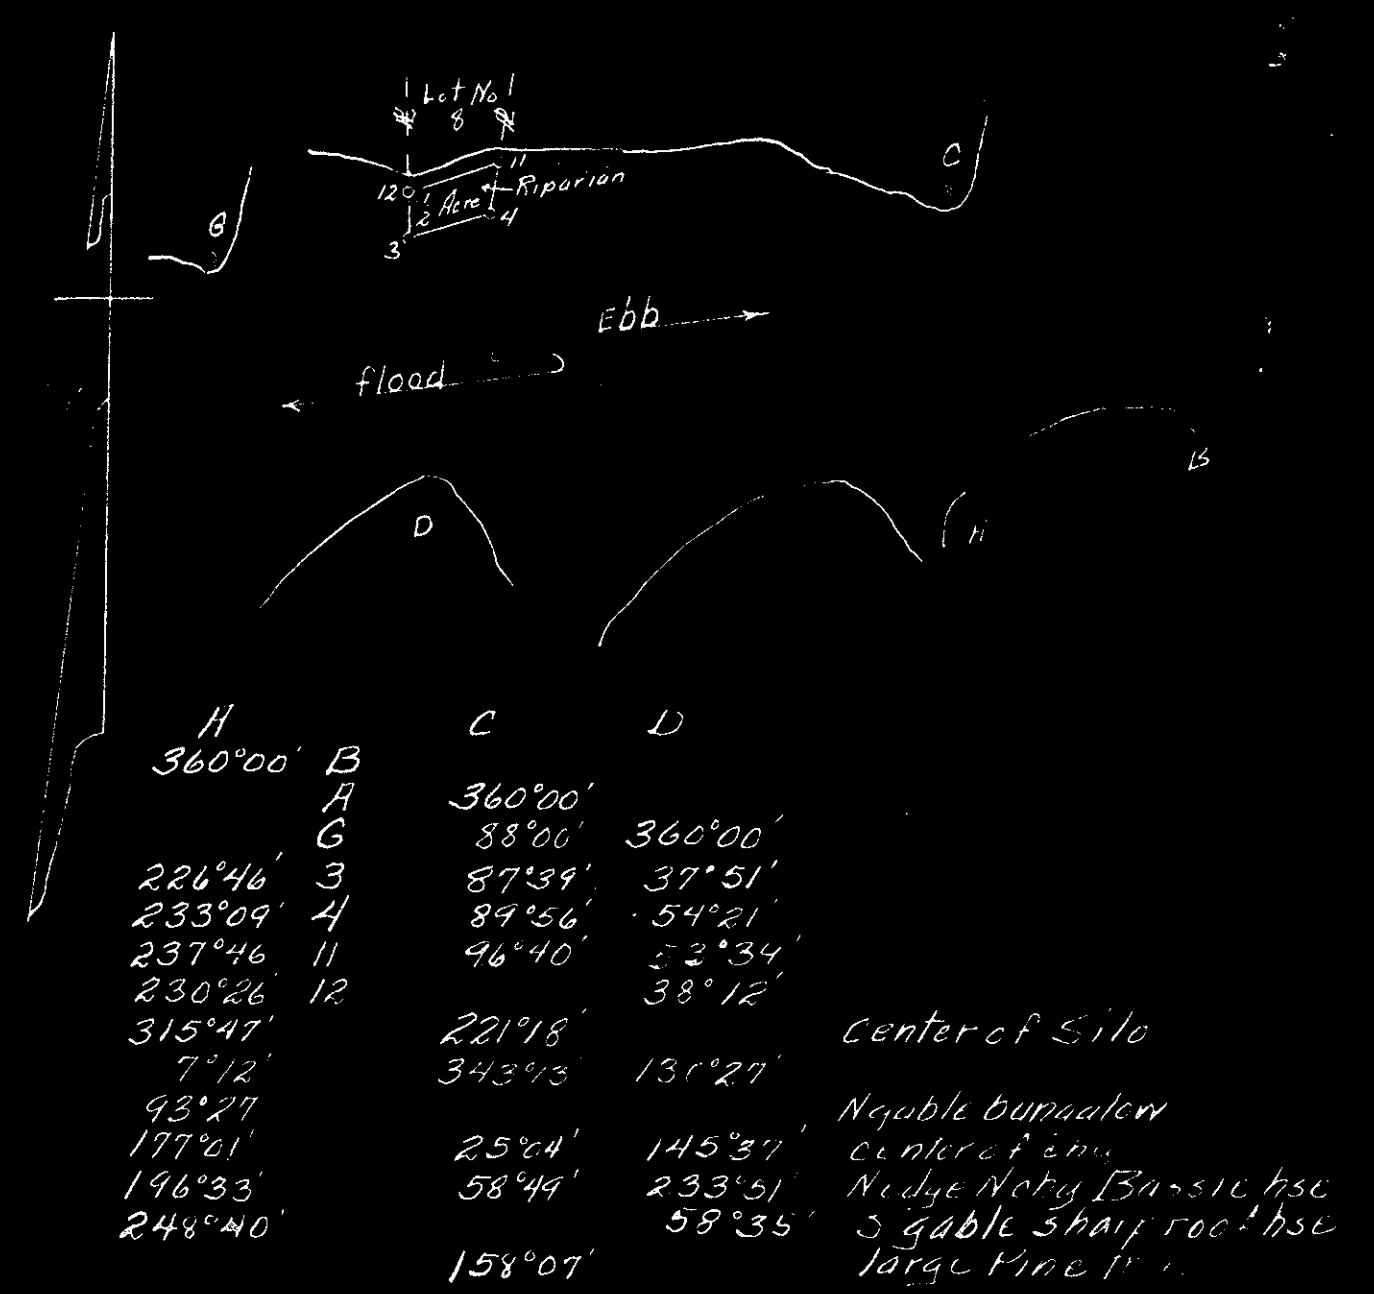 Lot No 1
8
11
12
1 Acre
Riparian
2
4
3
G
C
Ebb
flood
B
D
H
H C D
360°00' B
A 360°00'
G 88°00' 360°00'
226°46' 3 87°39' 37°51'
233°09' 4 89°56' 54°21'
237°46 11 96°40' 53°34'
230°26' 12 38°12'
315°47' 221°18' Center of Silo
7°12' 343°13'
93°27 N gable bungalow
177°01' 25°04' 145°37' center of
196°33' 58°49' 233°51' hse
248°40' 58°35' S gable sharp roof hse
158°07' large Pine